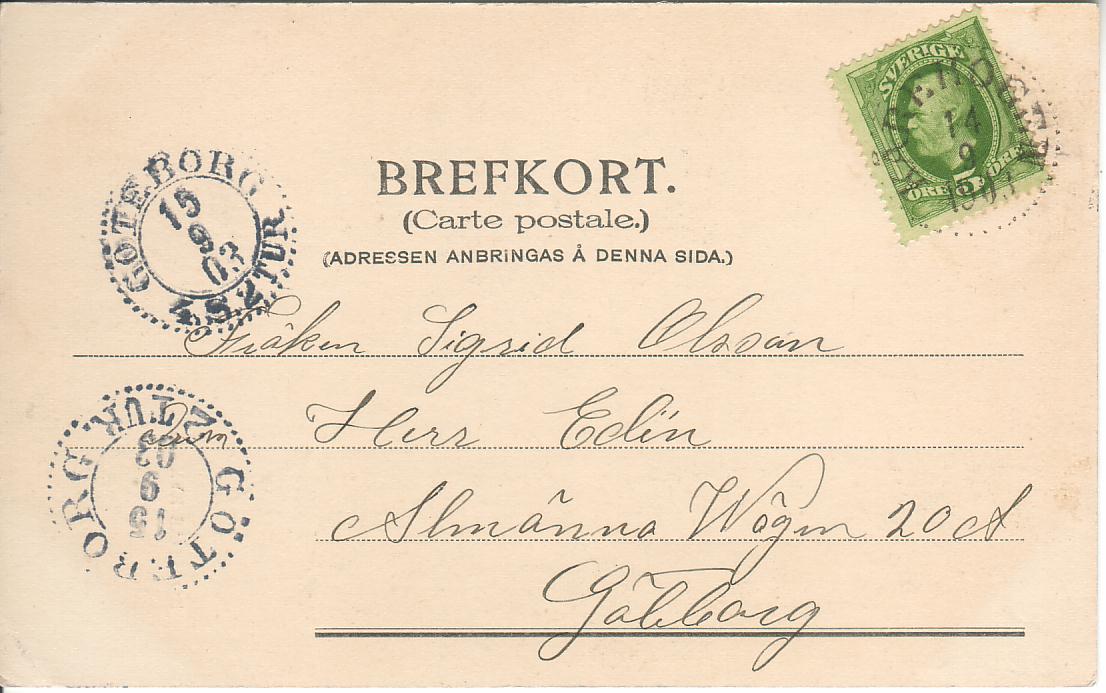 SVERIGE
5
ÖRE ÖRE
14
9
1903
BREFKORT.
(Carte postale.)
(ADRESSEN ANBRINGAS Å DENNA SIDA.)
GÖTEBORG
15
9
03
2 TUR
Fröken Sigrid Olsson
Herr Edlin
Almänna Wägen 20 A
Göteborg
GÖTEBORG
2 TUR
15
9
03